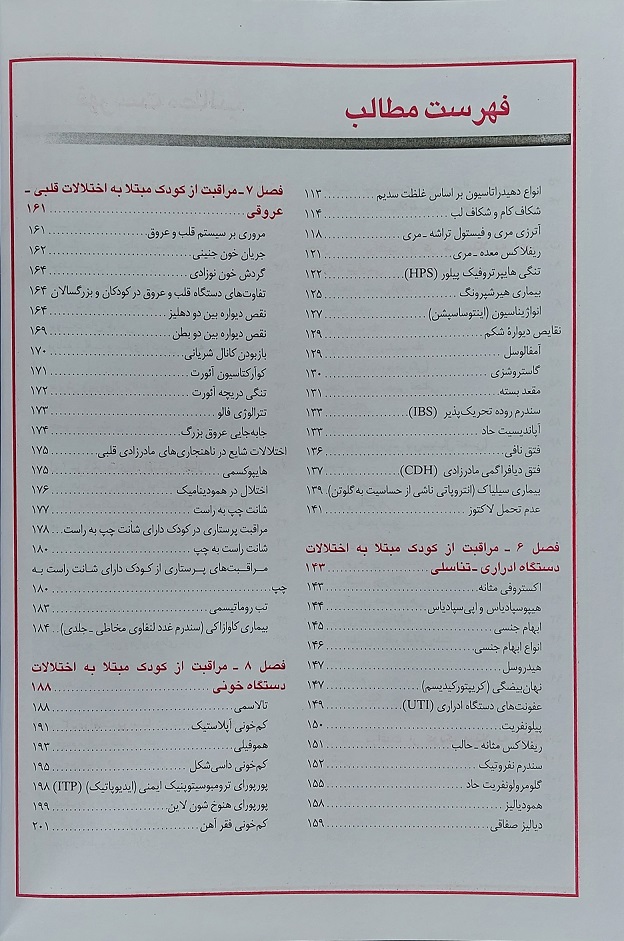 فهرست مطالب
انواع دهیدراتاسیون بر اساس غلظت سدیم ............ ۱۱۳
شکاف کام و شکاف لب ............ ۱۱۴
آترزی مری و فیستول تراشه ـ مری ............ ۱۱۸
ریفلاکس معده ـ مری ............ ۱۲۱
تنگی هایپرتروفیک پیلور (HPS) ............ ۱۲۲
بیماری هیرشپرونگ ............ ۱۲۵
انواژیناسیون (اینتوساسپشن) ............ ۱۲۷
نقایص دیوارهٔ شکم ............ ۱۲۹
آمفالوسل ............ ۱۲۹
گاستروشزی ............ ۱۳۰
مقعد بسته ............ ۱۳۱
سندرم روده تحریک‌پذیر (IBS) ............ ۱۳۳
آپاندیسیت حاد ............ ۱۳۳
فتق نافی ............ ۱۳۶
فتق دیافراگمی مادرزادی (CDH) ............ ۱۳۷
بیماری سیلیاک (انتروپاتی ناشی از حساسیت به گلوتن) . ۱۳۹
عدم تحمل لاکتوز ............ ۱۴۱
فصل ۶ ـ مراقبت از کودک مبتلا به اختلالات
دستگاه ادراری ـ تناسلی ............ ۱۴۳
اکستروفی مثانه ............ ۱۴۳
هیپوسپادیاس و اپی‌سپادیاس ............ ۱۴۴
ابهام جنسی ............ ۱۴۵
انواع ابهام جنسی ............ ۱۴۶
هیدروسل ............ ۱۴۷
نهان‌بیضگی (کریپتورکیدیسم) ............ ۱۴۷
عفونت‌های دستگاه ادراری (UTI) ............ ۱۴۹
پیلونفریت ............ ۱۵۰
ریفلاکس مثانه ـ حالب ............ ۱۵۱
سندرم نفروتیک ............ ۱۵۲
گلومرولونفریت حاد ............ ۱۵۵
همودیالیز ............ ۱۵۸
دیالیز صفاقی ............ ۱۵۹
فصل ۷ ـ مراقبت از کودک مبتلا به اختلالات قلبی ـ
عروقی ............ ۱۶۱
مروری بر سیستم قلب و عروق ............ ۱۶۱
جریان خون جنینی ............ ۱۶۲
گردش خون نوزادی ............ ۱۶۴
تفاوت‌های دستگاه قلب و عروق در کودکان و بزرگسالان ۱۶۴
نقص دیواره بین دو دهلیز ............ ۱۶۴
نقص دیواره بین دو بطن ............ ۱۶۹
بازبودن کانال شریانی ............ ۱۷۰
کوآرکتاسیون آئورت ............ ۱۷۱
تنگی دریچه آئورت ............ ۱۷۲
تترالوژی فالو ............ ۱۷۳
جابه‌جایی عروق بزرگ ............ ۱۷۴
اختلالات شایع در ناهنجاری‌های مادرزادی قلبی ............ ۱۷۵
هایپوکسمی ............ ۱۷۵
اختلال در همودینامیک ............ ۱۷۶
شانت چپ به راست ............ ۱۷۷
مراقبت پرستاری در کودک دارای شانت چپ به راست ... ۱۷۸
شانت راست به چپ ............ ۱۸۰
مراقبت‌های پرستاری از کودک دارای شانت راست به
چپ ............ ۱۸۰
تب روماتیسمی ............ ۱۸۳
بیماری کاوازاکی (سندرم غدد لنفاوی مخاطی ـ جلدی) .. ۱۸۴
فصل ۸ ـ مراقبت از کودک مبتلا به اختلالات
دستگاه خونی ............ ۱۸۸
تالاسمی ............ ۱۸۸
کم‌خونی آپلاستیک ............ ۱۹۱
هموفیلی ............ ۱۹۳
کم‌خونی داسی‌شکل ............ ۱۹۵
پورپورای ترومبوسیتوپنیک ایمنی (ایدیوپاتیک) (ITP) ۱۹۸
پورپورای هنوخ شون لاین ............ ۱۹۹
کم‌خونی فقر آهن ............ ۲۰۱